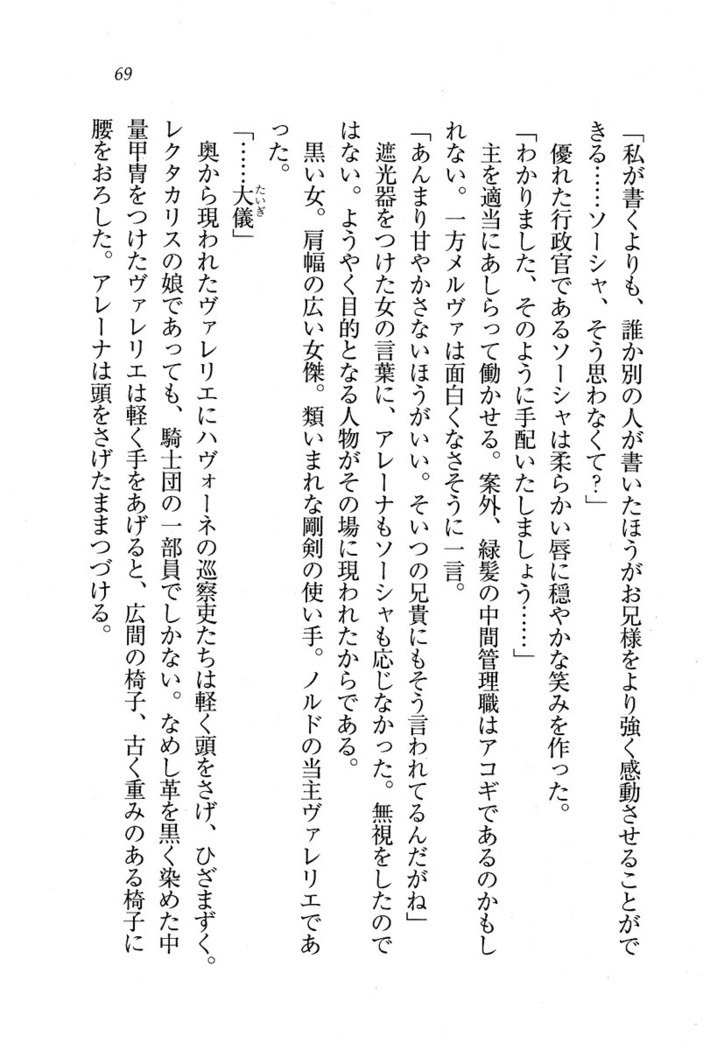 69
「私が書くよりも、誰か別の人が書いたほうがお兄様をより強く感動させることがで
きる……ソーシャ、そう思わなくて？」
優れた行政官であるソーシャは柔らかい唇に穏やかな笑みを作った。
「わかりました、そのように手配いたしましょう……」
主を適当にあしらって働かせる。案外、緑髪の中間管理職はアコギであるのかもし
れない。一方メルヴァは面白くなさそうに一言。
「あんまり甘やかさないほうがいい。そいつの兄貴にもそう言われてるんだがね」
遮光器をつけた女の言葉に、アレーナもソーシャも応じなかった。無視をしたので
はない。ようやく目的となる人物がその場に現われたからである。
黒い女。肩幅の広い女傑。類いまれな剛剣の使い手。ノルドの当主ヴァレリエであ
った。
「……大儀」
たいぎ
奥から現われたヴァレリエにハヴォーネの巡察吏たちは軽く頭をさげ、ひざまずく。
レクタカリスの娘であっても、騎士団の一部員でしかない。なめし革を黒く染めた中
量甲冑をつけたヴァレリエは軽く手をあげると、広間の椅子、古く重みのある椅子に
腰をおろした。アレーナは頭をさげたままつづける。